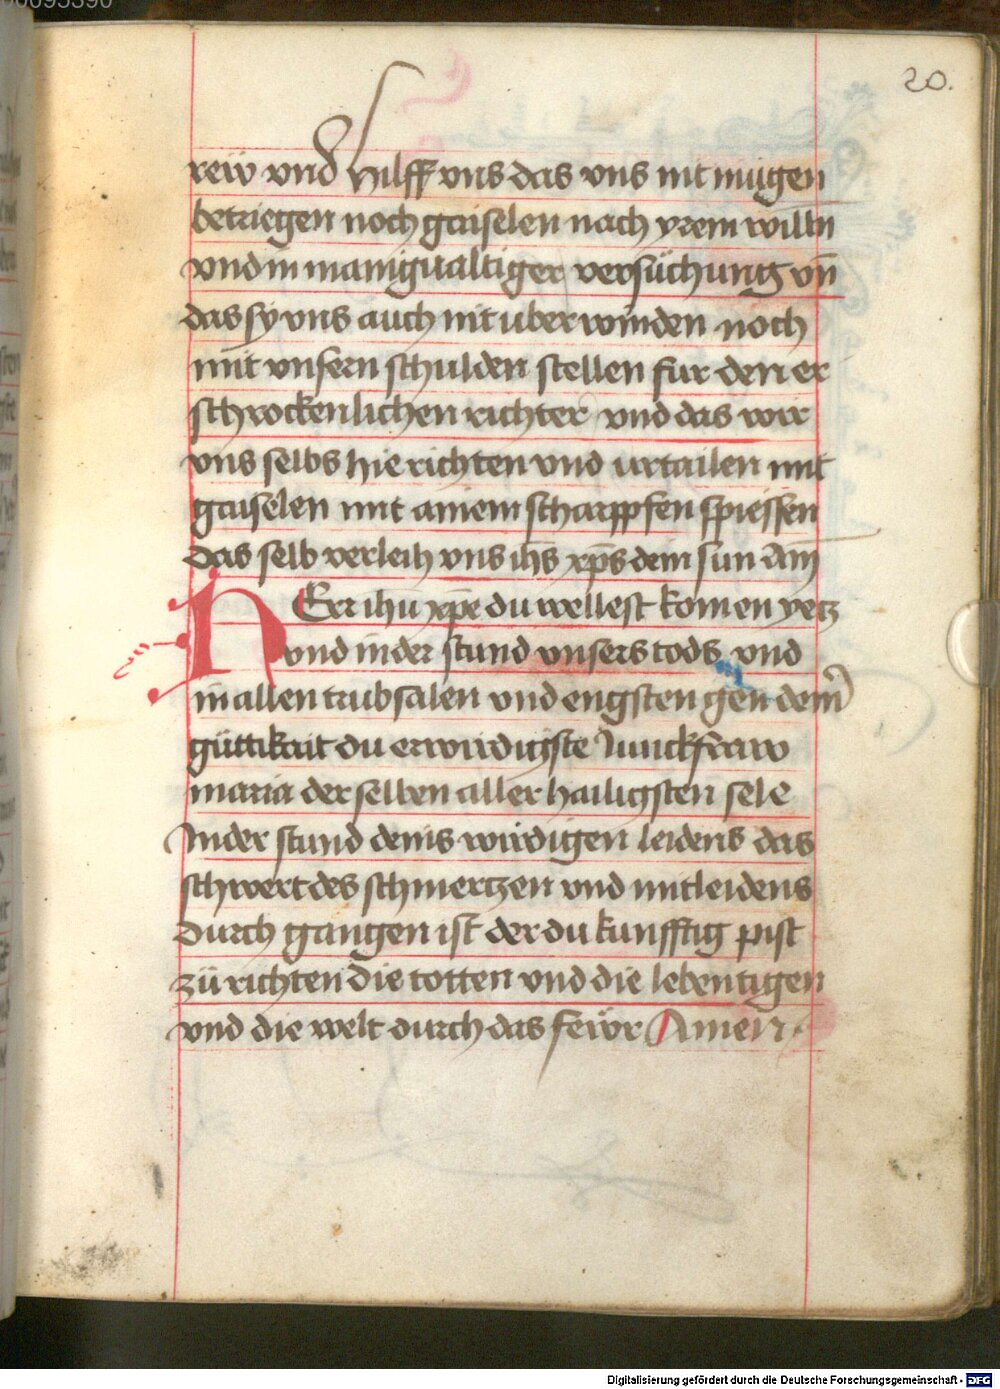 20.
rew vnd hilff vns das vns nit mügen
betriegen noch gaiselen nach yrem willn
vnd in manigualtiger versüchung vn̄
das sy vns auch nit uber winden noch
mit vnsern schulden stellen fur den er
schrockenlichen richter vnd das wir
vns selbs hie richten vnd urtailen mit
gaiselen mit ainem scharppfen spiessen
das selb verleih vns ih̄s xp̄s dein sun am̄
HErr ih̄u xp̄e du wellest komen yetz
vnd in der stund vnsers tods vnd
in allen trubsalen vnd engsten gen dem̄
güttikait du erwirdigste Junckfraw
maria der selben aller hailigsten sele
In der stund deins wirdigen leidens das
schwert des schmertzen vnd mitleidens
durch gangen ist der du kunfftig pist
zü richten die totten vnd die lebentigen
vnd die welt durch das fewr Amen
Digitalisierung gefördert durch die Deutsche Forschungsgemeinschaft - DFG